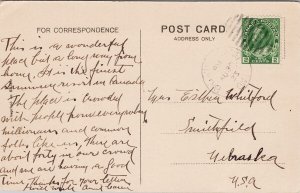 FOR CORRESPONDENCE
POST CARD
ADDRESS ONLY
This is a wonderful
place but a long way from
home. It is the finest
summer resort in Canada
The place is crowded
with people from everywhere
millionairs and common
folks like us, There are
about forty in our crowd
and we are having a good
time. Thanks for your letter
Mrs Esther Whitford
Smithfield
Nebraska
U.S.A.
2 CENTS 2